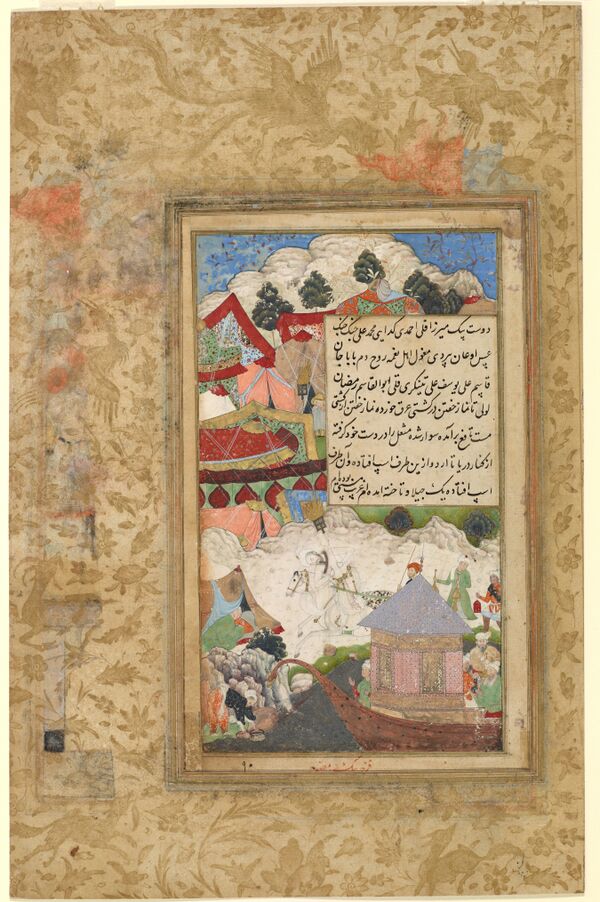 دوست بیک میرزا قلی احمدی گدایی محمد علی جنگ جنگ
عسس اوغان بردی مغول اهل نغمه روح دم بابا جان
قاسم علی یوسف علی تینکری قلی ابوالقاسم رمضان
لولی تا نماز خفتن در کشتی عرق خورده نماز خفتن از کشتی
مست برآمده سوار شده مشعل را در دست خود گرفته
از کنار دریا تا اردو ازین طرف اسپ افتاده و آن طرف
اسپ افتاده یک جیلاو تاخته آمده ام
۹۰